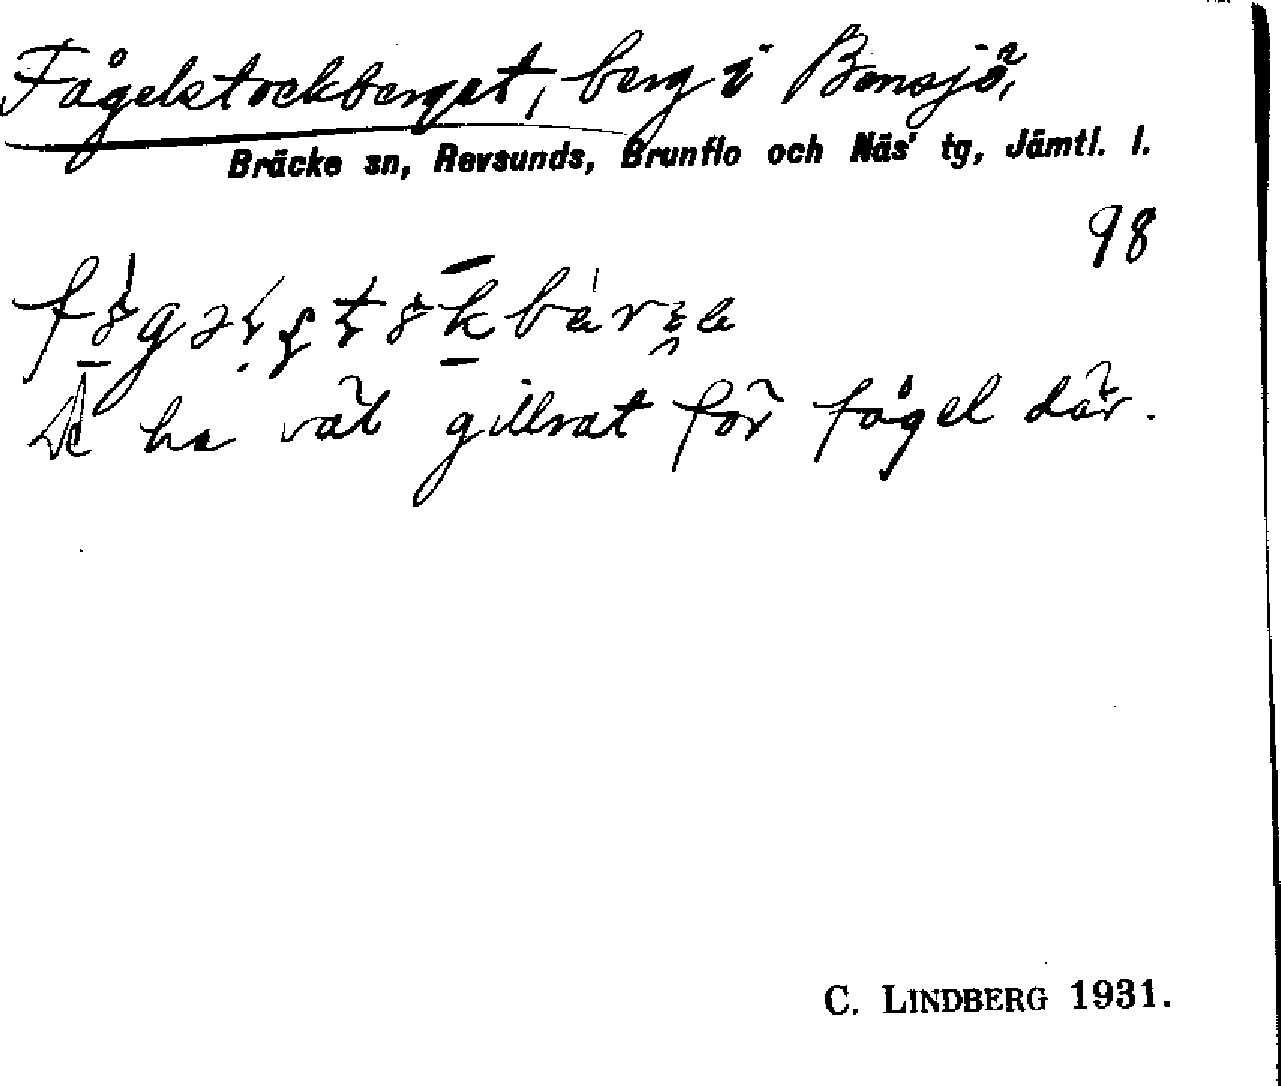 Fågelstockberget, berg i Bensjö,
Bräcke sn, Revsunds, Brunflo och Näs' tg, Jämtl. l.
98
De ha väl gillrat för fågel där.
C. LINDBERG 1931.